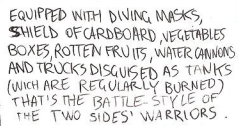 EQUIPPED WITH DIVING MASKS,
SHIELD OF CARDBOARD, VEGETABLES
BOXES, ROTTEN FRUITS, WATER CANNONS
AND TRUCKS DISGUISED AS TANKS
(WICH ARE REGULARLY BURNED)
THAT'S THE BATTLE-STYLE OF
THE TWO SIDES' WARRIORS.